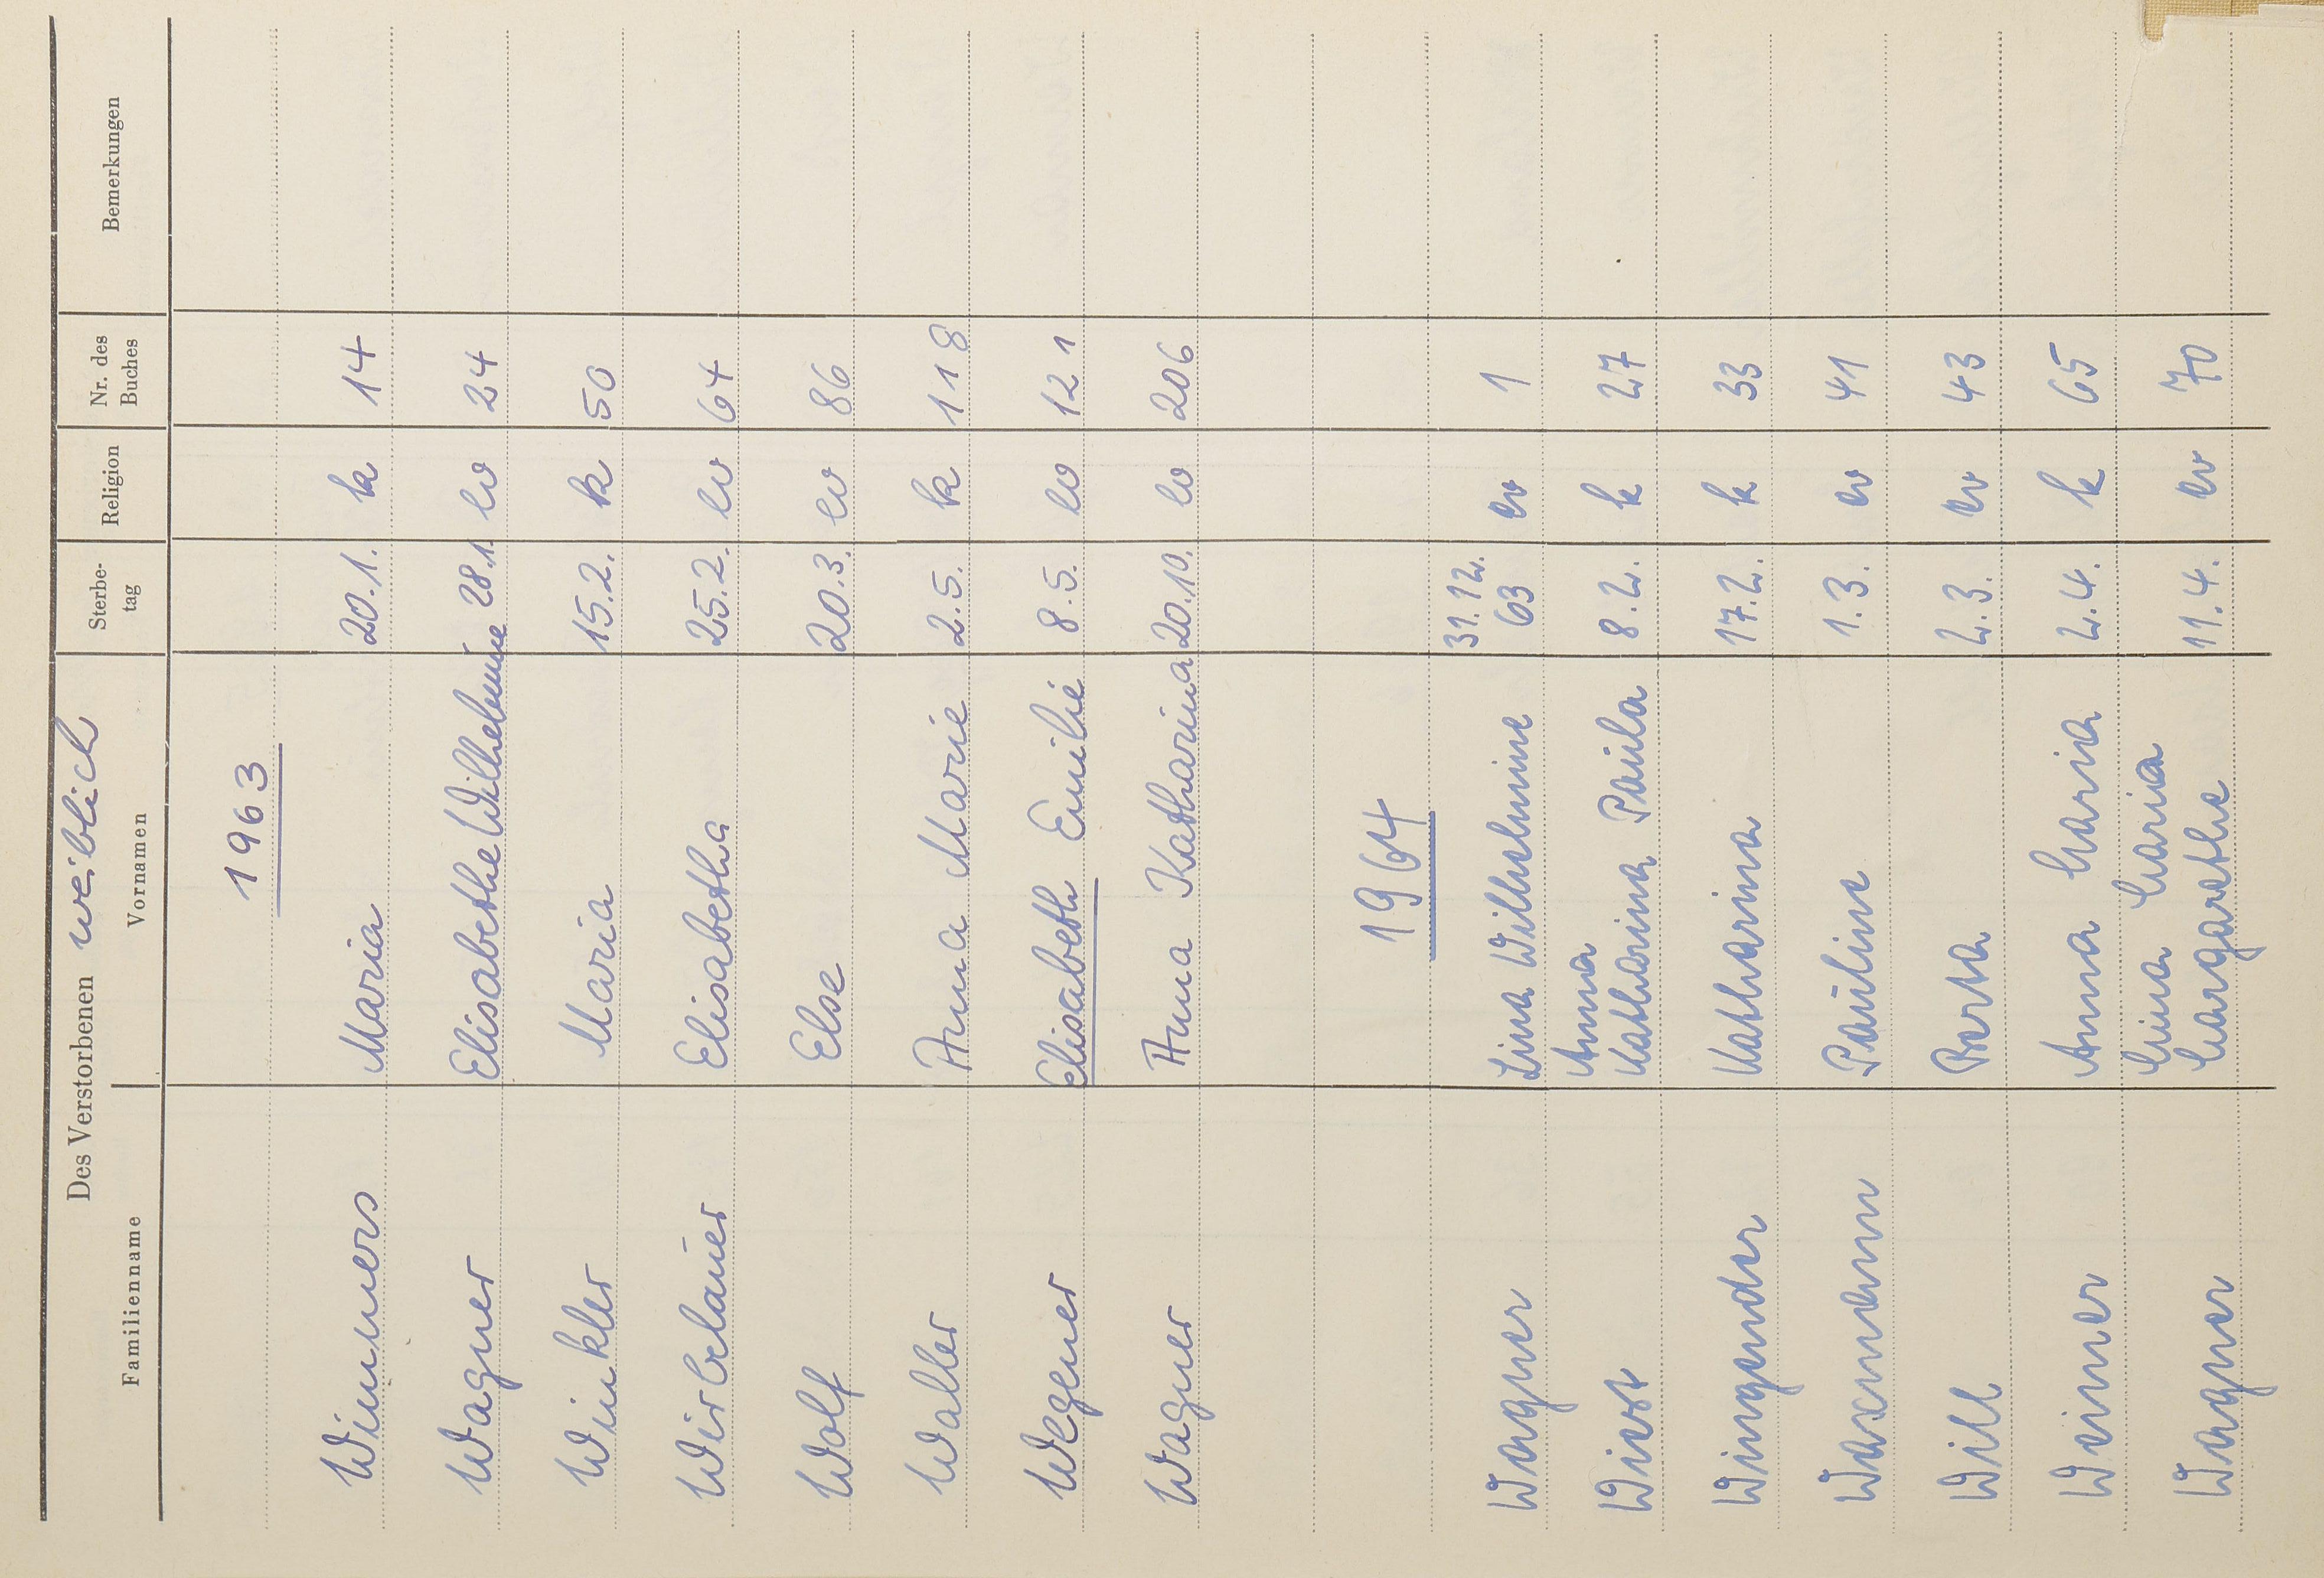 Des Verstorbenen weiblich
Familienname Vornamen Sterbe- tag Religion Nr. des Buches Bemerkungen
1963
Wimmers Maria 20.1. k 14
Wagner Elisabethe Wilhelmine 28.1. ev 24
Winkler Maria 15.2. k 50
Wirbelauer Elisabetha 25.2. ev 64
Wolf Else 20.3. ev 86
Walter Anna Marie 2.5. k 118
Wegener Elisabeth Emilie 8.5. ev 121
Wagner Anna Katharina 20.10. ev 206
1964
Wagner Lina Wilhelmine 31.12. 63 ev 1
Wiest Anna Katharina Paula 8.2. k 27
Wingender Katharina 17.2. k 33
Waxmann Pauline 1.3. ev 41
Will Berta 2.3. ev 43
Weimer Anna Maria 2.4. k 65
Wagner Mina Maria Margarethe 11.4. ev 70